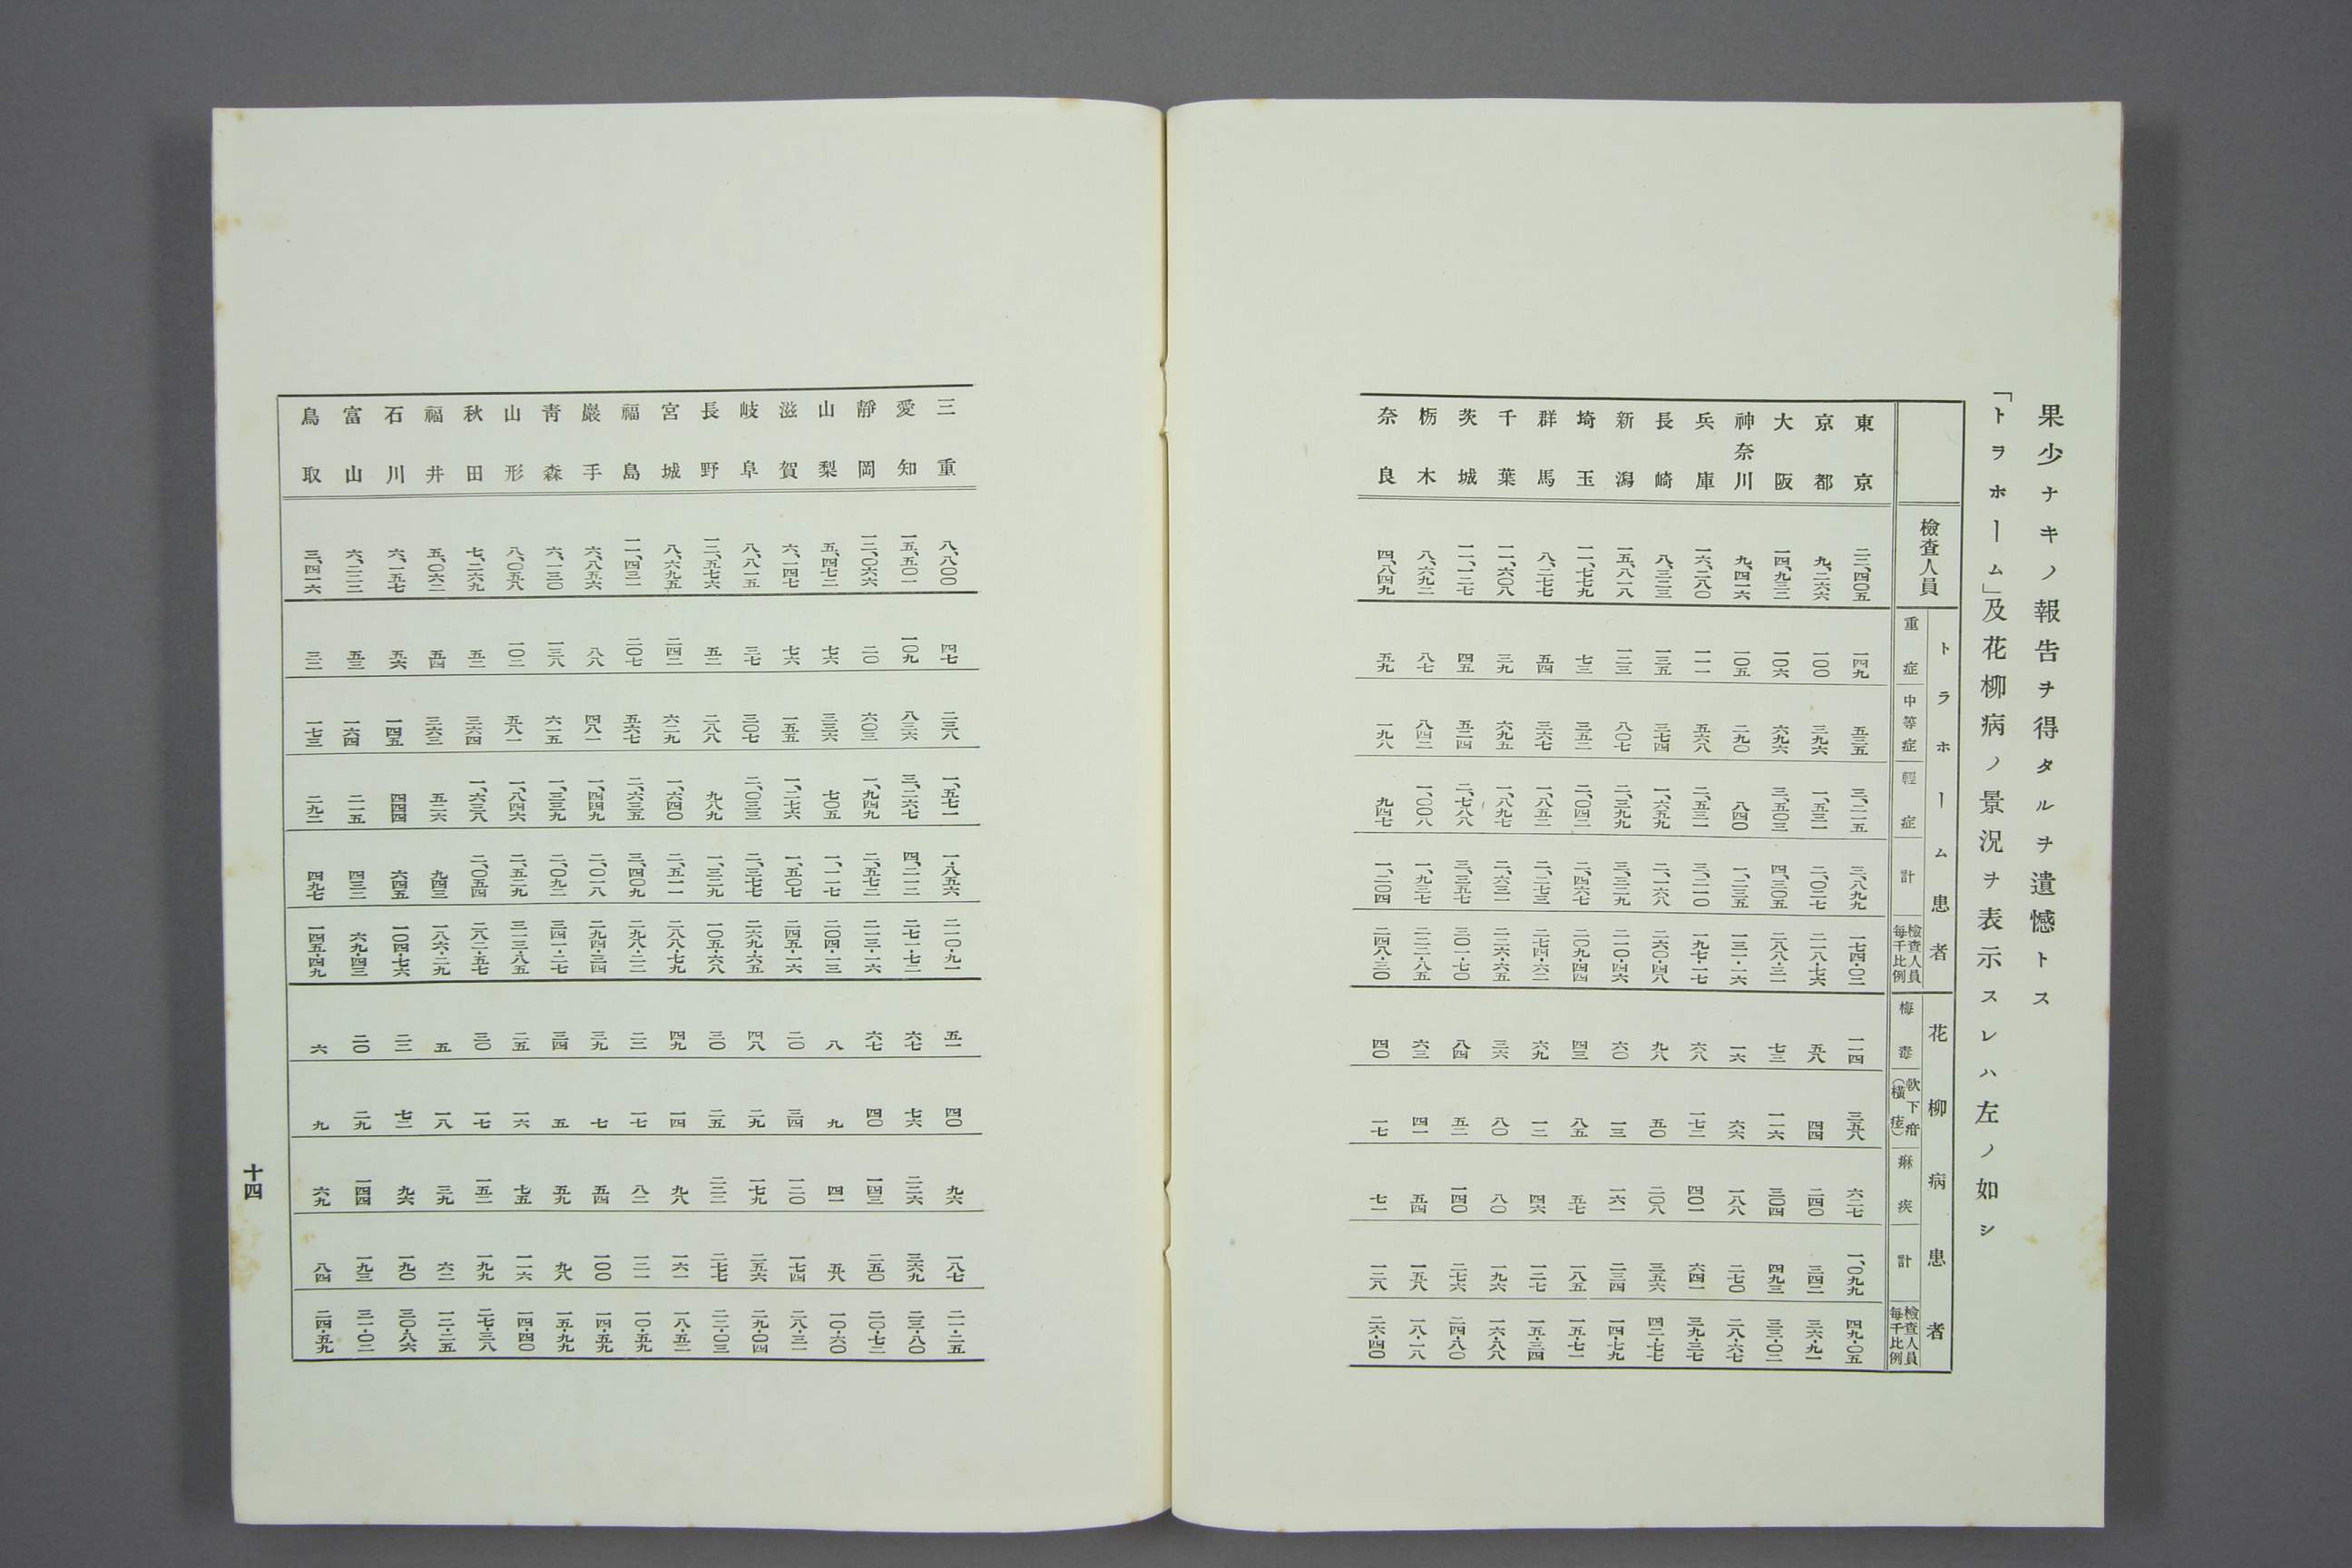 果少ナキノ報告ヲ得タルヲ遺憾トス
「トラホーム」及花柳病ノ景況ヲ表示スレハ左ノ如シ
檢査人員
トラホーム患者
重症
中等症
輕症
計
檢査人員
每千比例
花柳病患者
梅毒
軟下疳
(橫痃)
痳疾
計
檢査人員
每千比例
東京 二二、四〇五 一四九 五三五 三、二一五 三、八九九 一七四·〇二 一一四 三五八 六二七 一、〇九九 四九·〇五
京都 九、二六六 一〇〇 三九六 一、五三一 二、〇二七 二一八·七六 五八 四四 二四〇 三四二 三六·九一
大阪 一四、九三二 一〇六 六九六 三、五〇三 四、三〇五 二八八·三一 七三 一一六 三〇四 四九三 三三·〇二
神奈川 九、四一六 一〇五 二九〇 八四〇 一、二三五 一三一·一六 一六 六六 一八八 二七〇 二八·六七
兵庫 一六、二八〇 一一一 五六八 二、五三一 三、二一〇 一九七·一七 六八 一七二 四〇一 六四一 三九·三七
長崎 八、三二三 一三五 三七四 一、六五九 二、一六八 二六〇·四八 九八 五〇 二〇八 三五六 四二·七七
新潟 一五、八一八 一二三 八〇七 二、三九九 三、三二九 二一〇·四六 六〇 一三 一六一 二三四 一四·七九
埼玉 一一、七七九 七三 三五二 二、〇四二 二、四六七 二〇九·四四 四三 八五 五七 一八五 一五·七一
群馬 八、二七七 五四 三六七 一、八五二 二、二七三 二七四·六二 六九 一二 四六 一二七 一五·三四
千葉 一一、六〇八 三九 六九五 一、八九七 二、六三一 二二六·六五 三六 八〇 八〇 一九六 一六·八八
茨城 一一、一二七 四五 五二四 二、七八八 三、三五七 三〇一·七〇 八四 五二 一四〇 二七六 二四·八〇
栃木 八、六九二 八七 八四二 一、〇〇八 一、九三七 二二二·八五 六三 四一 五四 一五八 一八·一八
奈良 四、八四九 五九 一九八 九四七 一、二〇四 二四八·三〇 四〇 一七 七一 一二八 二六·四〇
三重 八、八〇〇 四七 二三八 一、五七一 一·八五六 二一〇·九一 五一 四〇 九六 一八七 二一·二五
愛知 一五、五〇一 一〇九 八三六 三、二六七 四、二一二 二七一·七二 六七 七六 二二六 三六九 二三·八〇
靜岡 一二、〇六六 二〇 六〇三 一、九四九 二、五七二 二一三·一六 六七 四〇 一四三 二五〇 二〇·七二
山梨 五、四七二 七六 三三六 七〇五 一、一一七 二〇四·一三 八 九 四一 五八 一〇·六〇
滋賀 六、一四七 七六 一五五 一、二七六 一、五〇七 二四五·一六 二〇 三四 一二〇 一七四 二八·三一
岐阜 八、八一五 三七 三〇七 二、〇三三 二、三七七 二六九·六五 四八 二九 一七九 二五六 二九·〇四
長野 一二、五七六 五二 二八八 九八九 一、三二九 一〇五·六八 三〇 二五 二二二 二七七 二二·〇三
宮城 八、六九五 二四二 六二九 一、六四〇 二、五一一 二八八·七九 四九 一四 九八 一六一 一八·五二
福島 一一、四三一 二〇七 五六七 二、六三五 三、四〇九 二九八·二二 二二 一七 八二 一二一 一〇·五九
巖手 六、八五六 八八 四八一 一、四四九 二、〇一八 二九四·三四 三九 七 五四 一〇〇 一四·五九
靑森 六、一三〇 一三八 六一五 一、三三九 二、〇九二 三四一·二七 三四 五 五九 九八 一五·九九
山形 八、〇五八 一〇二 五八一 一、八四六 二、五二九 三一三·八五 二五 一六 七五 一一六 一四·四〇
秋田 七、二六九 五二 三六四 一、六三八 二、〇五四 二八二·五七 三〇 一七 一五二 一九九 二七·三八
福井 五、〇六二 五四 三六三 五二六 九四三 一八六·二九 五 一八 三九 六二 一二·二五
石川 六、一五七 五六 一四五 四四四 六四五 一〇四·七六 二二 七二 九六 一九〇 三〇·八六
富山 六、二二二 五三 一六四 二一五 四三二 六九·四三 二〇 二九 一四四 一九三 三一·〇二
鳥取 三、四一六 三二 一七三 二九二 四九七 一四五·四九 六 九 六九 八四 二四·五九
十四